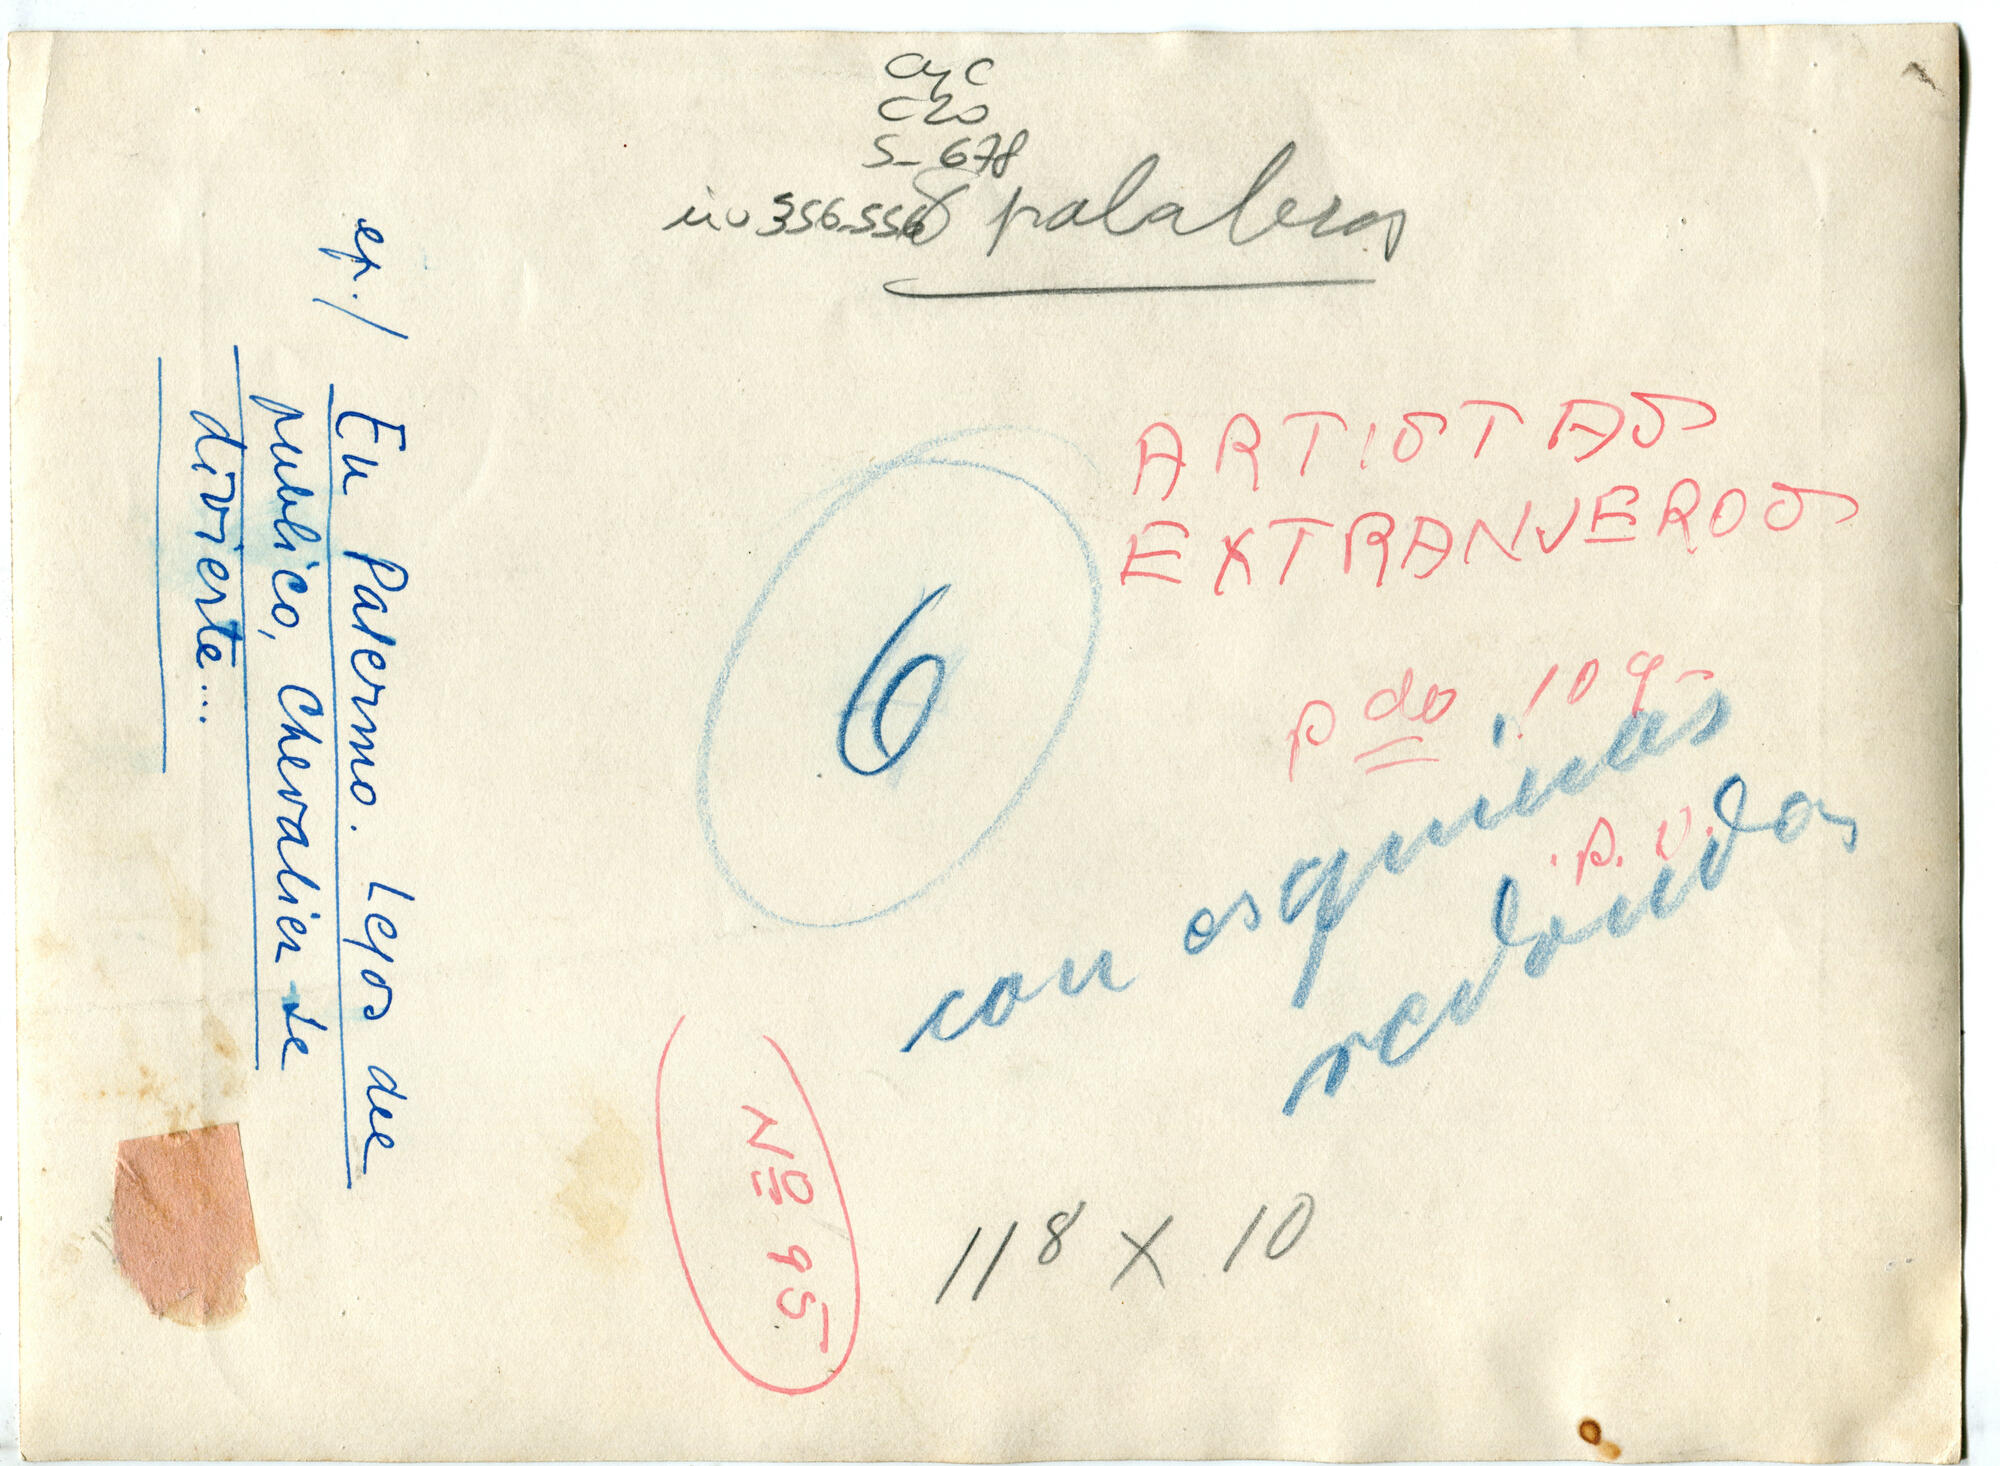 CyC
C20
S-678
inv 356-556
8 palabras
ep./ En Palermo. Lejos de
publico, Chevalier se
divierte...
ARTISTAS
EXTRANJEROS
pdo 109-
6
con esquinas
redondas
p.v.
Nº 95
118 x 10